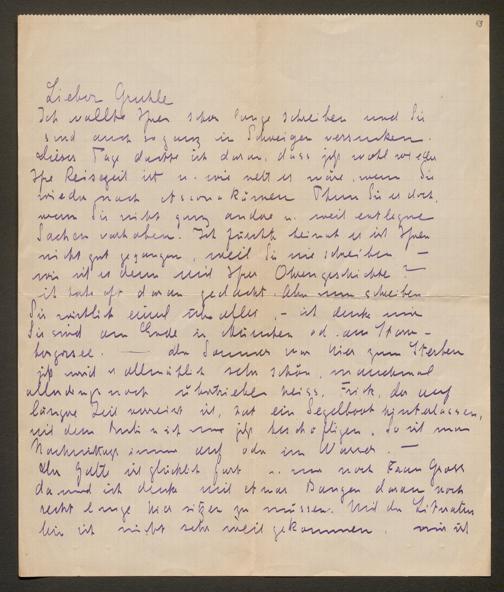 Lieber Gruhle
Ich wollte Ihnen schon lange schreiben und Sie
sind auch so ganz in Schweigen versunken.
Dieser Tage dachte ich daran, dass jetzt wohl vor
Ihre Reisezeit ist u. wie nett es wäre, wenn Sie
wieder nach Ascona kämen. Thun Sie es doch,
wenn Sie nicht ganz andre u. weit entlegne
Sachen vorhaben. Ich fürchte beinah es ist Ihnen
nicht gut gegangen, weil Sie nie schreiben –
wie ist es denn mit Ihrer Ohrengeschichte? –
ich habe oft daran gedacht. Aber nun schreiben
Sie wirklich einmal von allem, – ich denke mir
Sie sind am Ende in München od. am Starn-
bergersee. — der Sommer war hier zum Sterben
jetzt wird es allmählich sehr schön, manchmal
allerdings noch übertrieben heiss. der auf
längre Zeit verreist ist, hat ein Segelboot hinterlassen,
mit dem wir jetzt beschäftigen, so ist man
Nachmittags immer auf oder im Wasser. —
Der ist glücklich fort u. nun noch Gross
da und ich denke mit etwas Bangen daran noch
recht lange hier sitzen zu müssen. Mit der Literatur
bin ich nicht sehr weit gekommen, mir ist